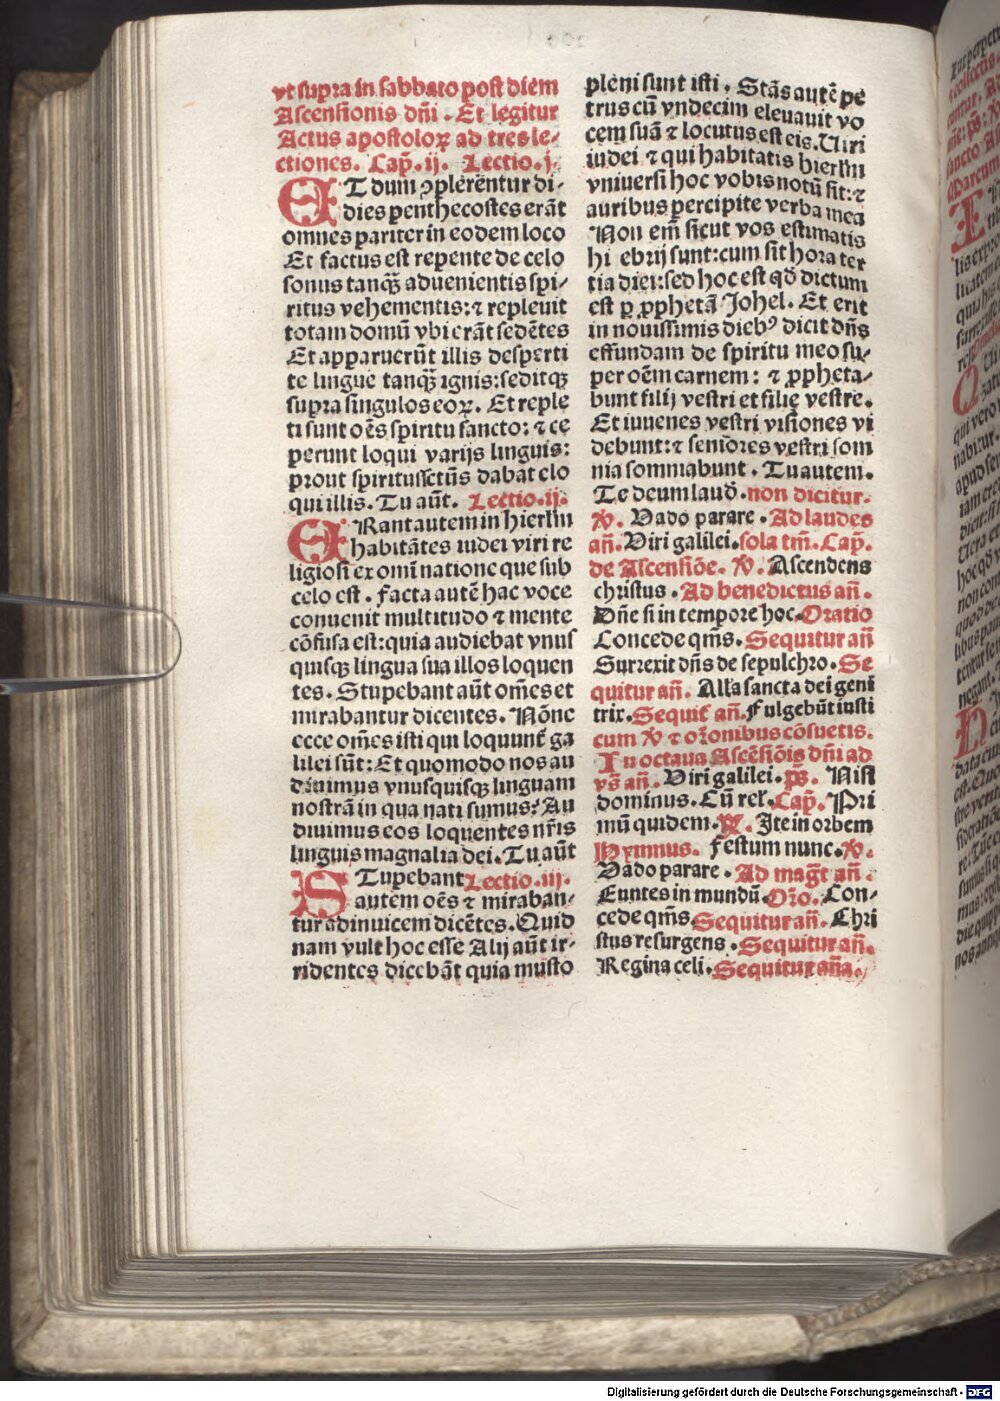 vt supra in sabbato post diem
Ascensionis dn̄i . Et legitur
Actus apostoloꝝ ad tres le⸗
ctiones. Cap̄. ij. Lectio. j.
ET dum ꝯplerentur di⸗
dies penthecostes erāt
omnes pariter in eodem loco
Et factus est repente de celo
sonus tanqꝫ aduenientis spi⸗
ritus vehementis: ⁊ repleuit
totam domū vbi erāt sedētes
Et apparuerūt illis desperti
te lingue tanqꝫ ignis: seditqꝫ
supra singulos eoꝝ. Et reple
ti sunt oēs spiritu sancto: ⁊ cę
perunt loqui varijs linguis:
prout spiritussctūs dabat elo
qui illis. Tu aūt. Lectio. ij.
ERant autem in hierlm̄
habitātes iudei viri re
ligiosi ex omī natione que sub
celo est . facta autē hac voce
conuenit multitudo ⁊ mente
cōfusa est: quia audiebat vnus
quisqꝫ lingua sua illos loquen
tes . Stupebant aūt om̄es et
mirabantur dicentes. Nōne
ecce om̄es isti qui loquunt̄ ga
lilei sūt: Et quomodo nos au
diuimus vnusquisqꝫ linguam
nostrā in qua nati sumus? Au
diuimus eos loquentes nr̄is
linguis magnalia dei. Tu aūt
STupebant Lectio. iij.
autem oēs ⁊ miraban⸗
tur adinuicem dicētes. Quid
nam vult hoc esse Alij aūt ir⸗
ridentes dicebāt quia musto
pleni sunt isti . Stās autē pe
trus cū vndecim eleuauit vo
cem suā ⁊ locutus est eis. Viri
iudei ⁊ qui habitatis hierlm̄
vniuersi hoc vobis notū sit: ⁊
auribus percipite verba mea
Non em̄ sicut vos estimatis
hi ebrij sunt: cum sit hora ter
tia diei: sed hoc est qđ dictum
est ꝑ ꝓphetā Johel. Et erit
in nouissimis diebꝰ dicit dn̄s
effundam de spiritu meo su⸗
per oēm carnem: ⁊ ꝓpheta⸗
bunt filij vestri et filię vestre.
Et iuuenes vestri visiones vi
debunt: ⁊ seniores vestri som
nia somniabunt . Tu autem.
Te deum laud̄. non dicitur.
℣. Vado parare . Ad laudes
an̄. Viri galilei. sola tm̄. Cap̄.
de Ascensiōe. ℣. Ascendens
christus . Ad benedictus an̄.
Dn̄e si in tempore hoc. Oratio
Concede qm̄s. Sequitur an̄
Surrexit dn̄s de sepulchro. Se
quitur an̄. Alla sancta dei geni
trix. Sequit̄ an̄. Fulgebūt iusti
cum ℣ ⁊ or̄onibus cōsuetis.
In octaua Ascēsiōis dn̄i ad
vs̄ an̄. Viri galilei. ps̄. Nisi
dominus. Cū rel̄. Cap̄. Pri
mū quidem. ℟. Ite in orbem
Hymnus. Festum nunc. ℣.
Vado parare . Ad maḡt an̄.
Euntes in mundū. Or̄o. Con⸗
cede qm̄s. Sequitur an̄. Chri
stus resurgens . Sequitur an̄.
Regina celi. Sequitur an̄a.
Digitalisierung gefördert durch die Deutsche Forschungsgemeinschaft - DFG